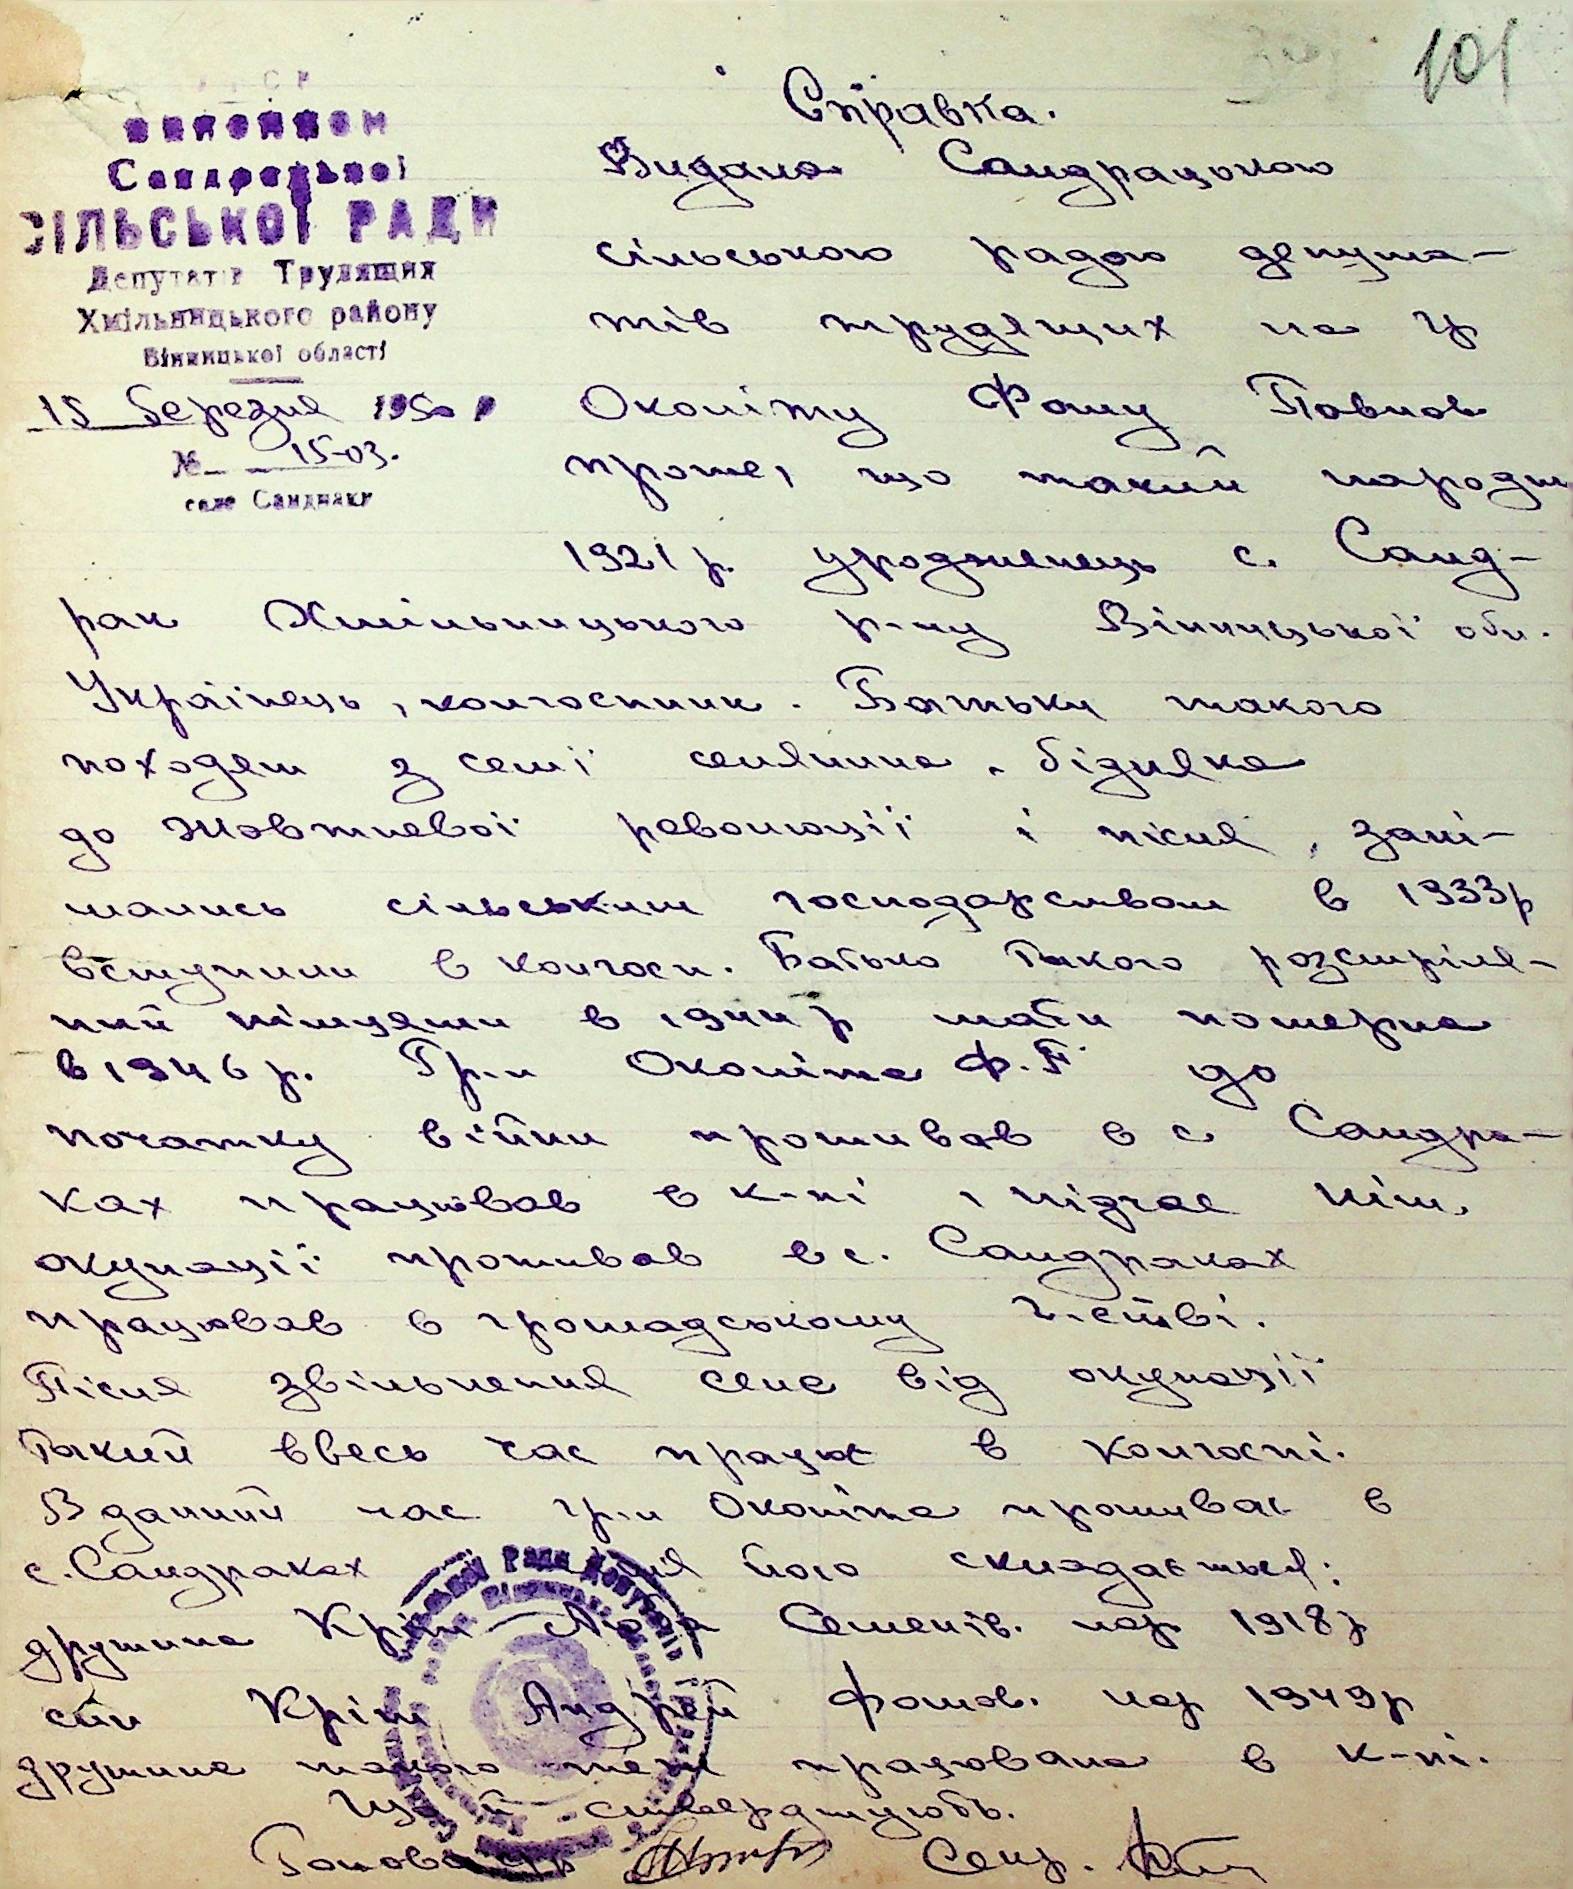 101
УРСР
виконком
Сандрацької
СІЛЬСЬКОЇ РАДИ
Депутатів Трудящих
Хмільницького району
Вінницької області
15 березня 1950 р
№ 15-03.
село Сандраки
Справка.
Видана Сандрацькою
сільською радою депута-
тів трудящих на гр
Околіту Фому Павлов
проте, що такий народж
1921 р. уродженець с. Санд-
рак Хмільницького р-ну Вінницької обл.
Українець, колгоспник. Батьки такого
походят з семї селянина - бідняка
до Жовтневої революції і після, зані-
мались сільським господарством в 1933р
вступили в колгосп. Батько такого розстріля-
ний німцями в 1944 р мати померла
в 1946 р. Гр-н Околіта Ф. П до
початку війни проживав в с Сандра-
ках працював в к-пі і підчас нім.
окупації проживав в с. Сандраках
працював в громадському г-стві.
Після звільнення села від окупації
такий ввесь час працює в колгоспі.
В даний час гр-н Околіта проживає в
с. Сандраках його складається:
дружина Кріт Люба Семенів. нар 1918р
син Кріт Андрей Фомов. нар 1949р
дружина такого теж працювала в к-пі.
Що й стверджують.
Голова с/р Секр.